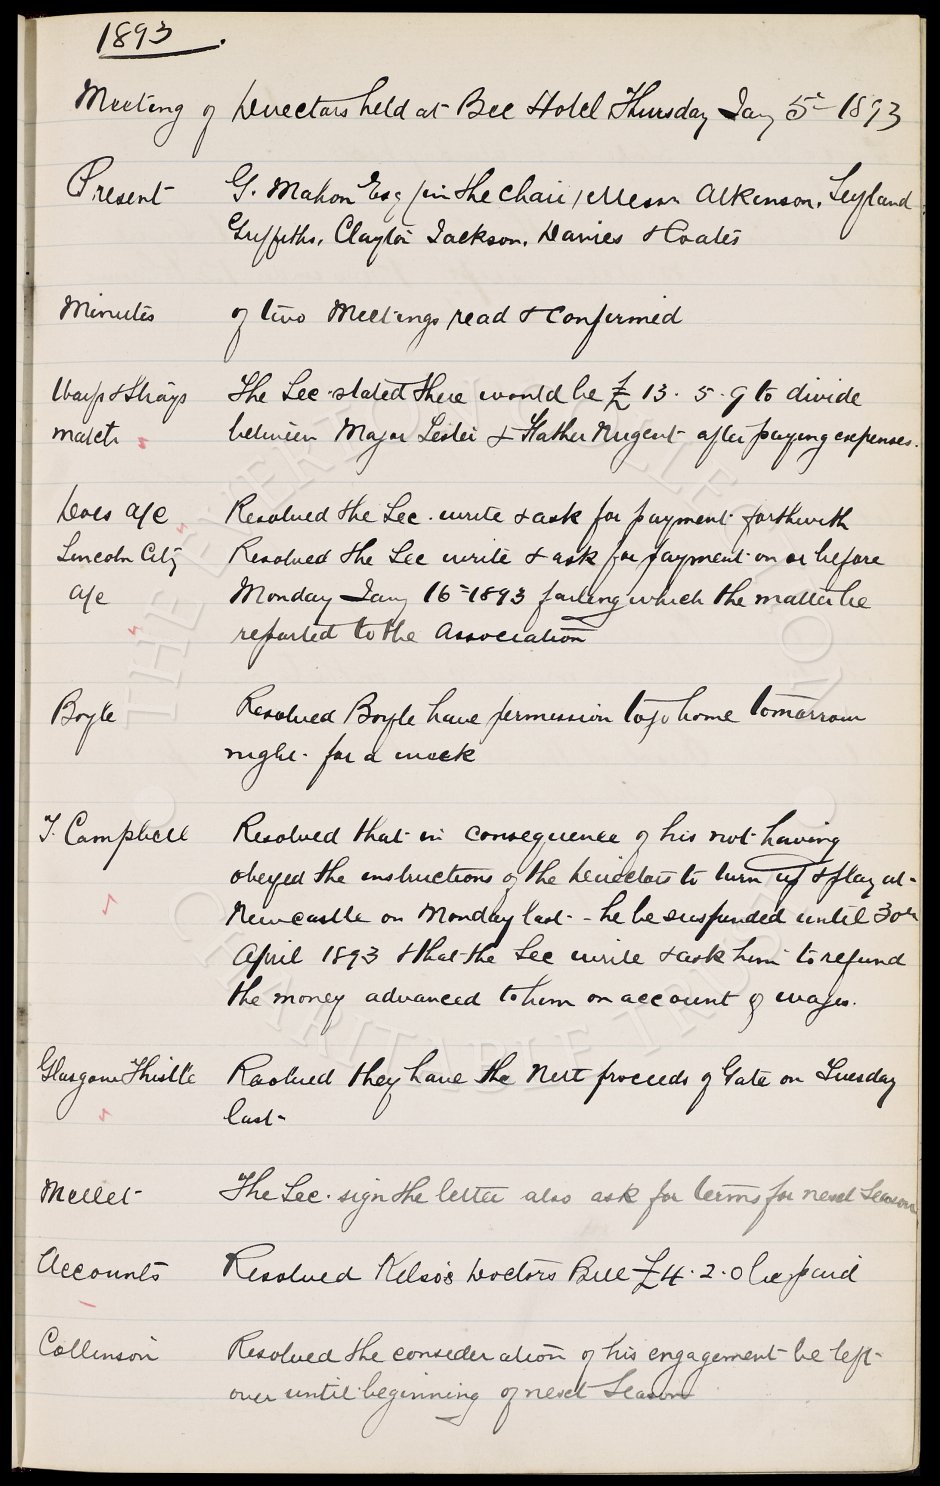 1893.
Meeting of Directors held at Bee Hotel Thursday Jany 5th 1893
Present G. Mahon Esq (in the chair) Messrs Atkinson, Leyland
Griffiths, Clayton Jackson, Davies & Coates
Minutes of two Meetings read & confirmed
Waifs & Strays The Sec. stated there would be £13.5.9 to divide
match between Major Lester & Father Nugent after paying expenses.
Dows a/c Resolved the Sec. write & ask for payment forthwith
Lincoln City Resolved the Sec write & ask for payment on or before
a/c Monday Jany 16th 1893 failing which the matter be
reported to the Association
Boyle Resolved Boyle have permission to go home tomorrow
night for a week
T. Campbell Resolved that in consequence of his not having
obeyed the instructions of the Directors to turn up & play at
Newcastle on Monday last - he be suspended until 30th
April 1893 & that the Sec write & ask him to refund
the money advanced to him on account of wages.
Glasgow Thistle Resolved they have the Nett proceeds of Gate on Tuesday
last
Mellet The Sec. sign the letter also ask for terms for next Season
Accounts Resolved Kelso's Doctors Bill £4.2.0 be paid
Collinson Resolved the consideration of his engagement be left
over until beginning of next Season
THE EVERTON COLLECTION
CHARITABLE TRUST